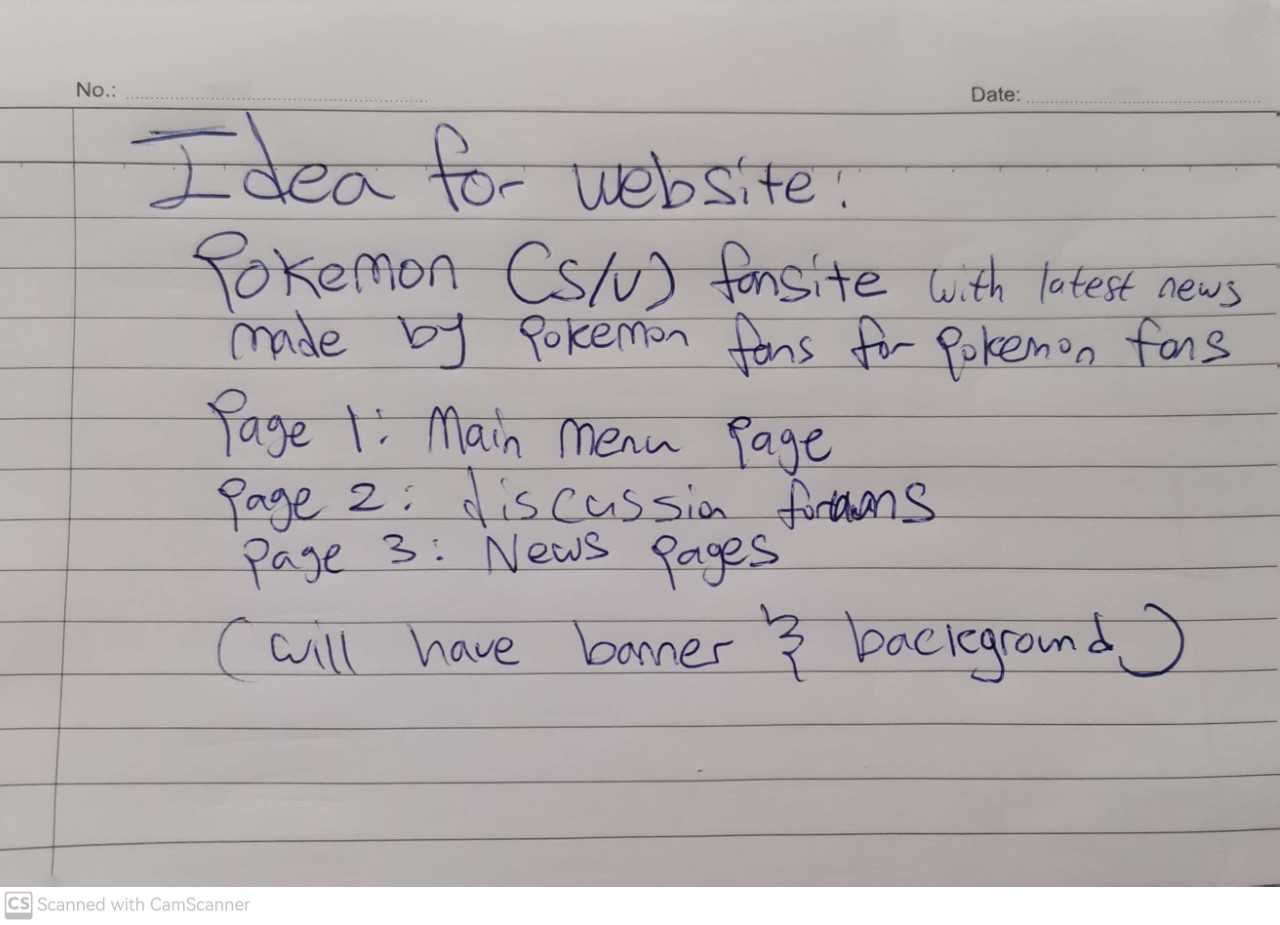 No.:
Date:
Idea for website:
Pokemon (S/V) fansite with latest news
made by Pokemon fans for Pokemon fans
Page 1: Main menu page
Page 2: discussion forums
Page 3: News pages
(will have banner & background)
CS Scanned with CamScanner